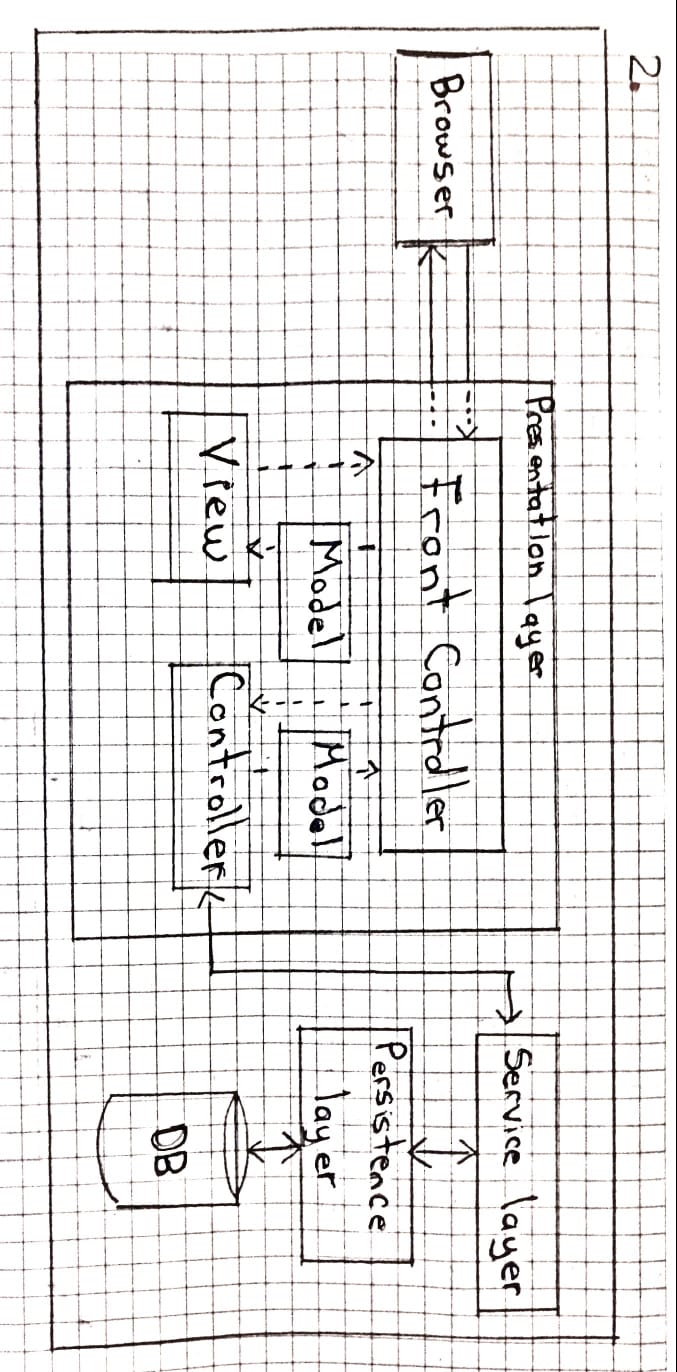 2.
Browser
Presentation layer
Front Controller
Model
Model
View
Controller
Service layer
Persistence
layer
DB